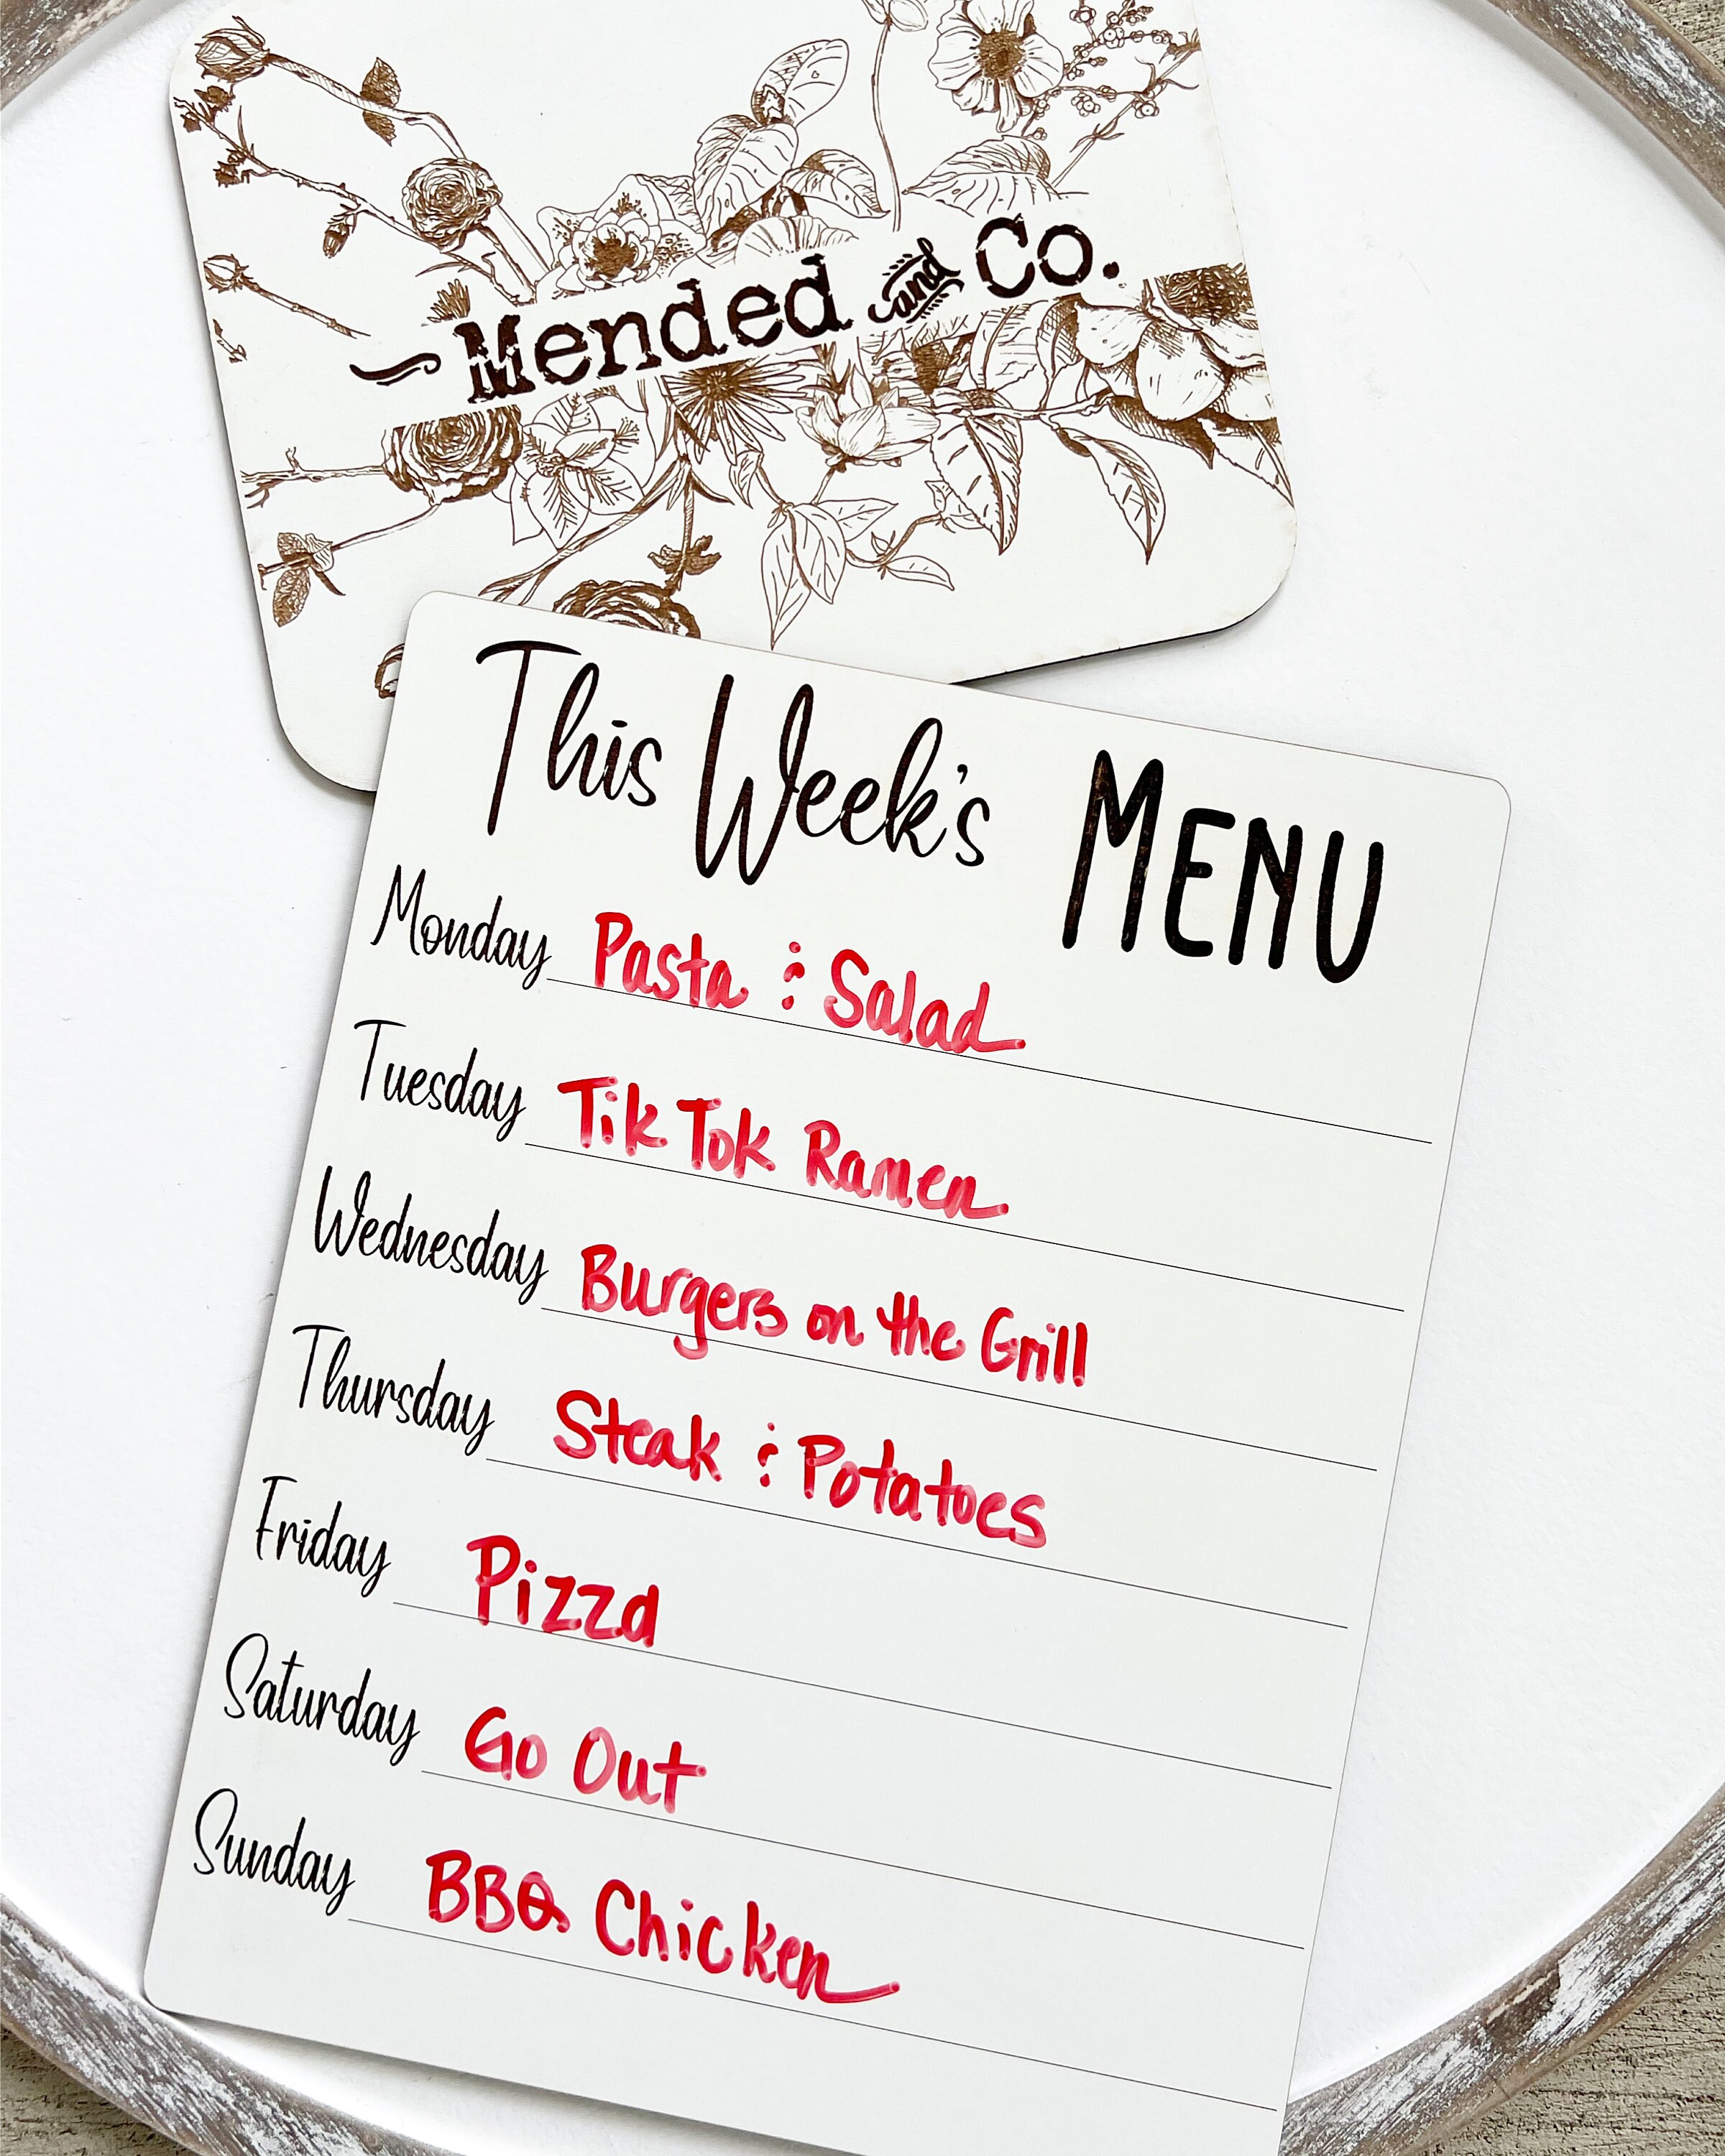 Mended and Co.
This Week's MENU
Monday Pasta & Salad
Tuesday Tik Tok Ramen
Wednesday Burgers on the Grill
Thursday Steak & Potatoes
Friday Pizza
Saturday Go Out
Sunday BBQ Chicken